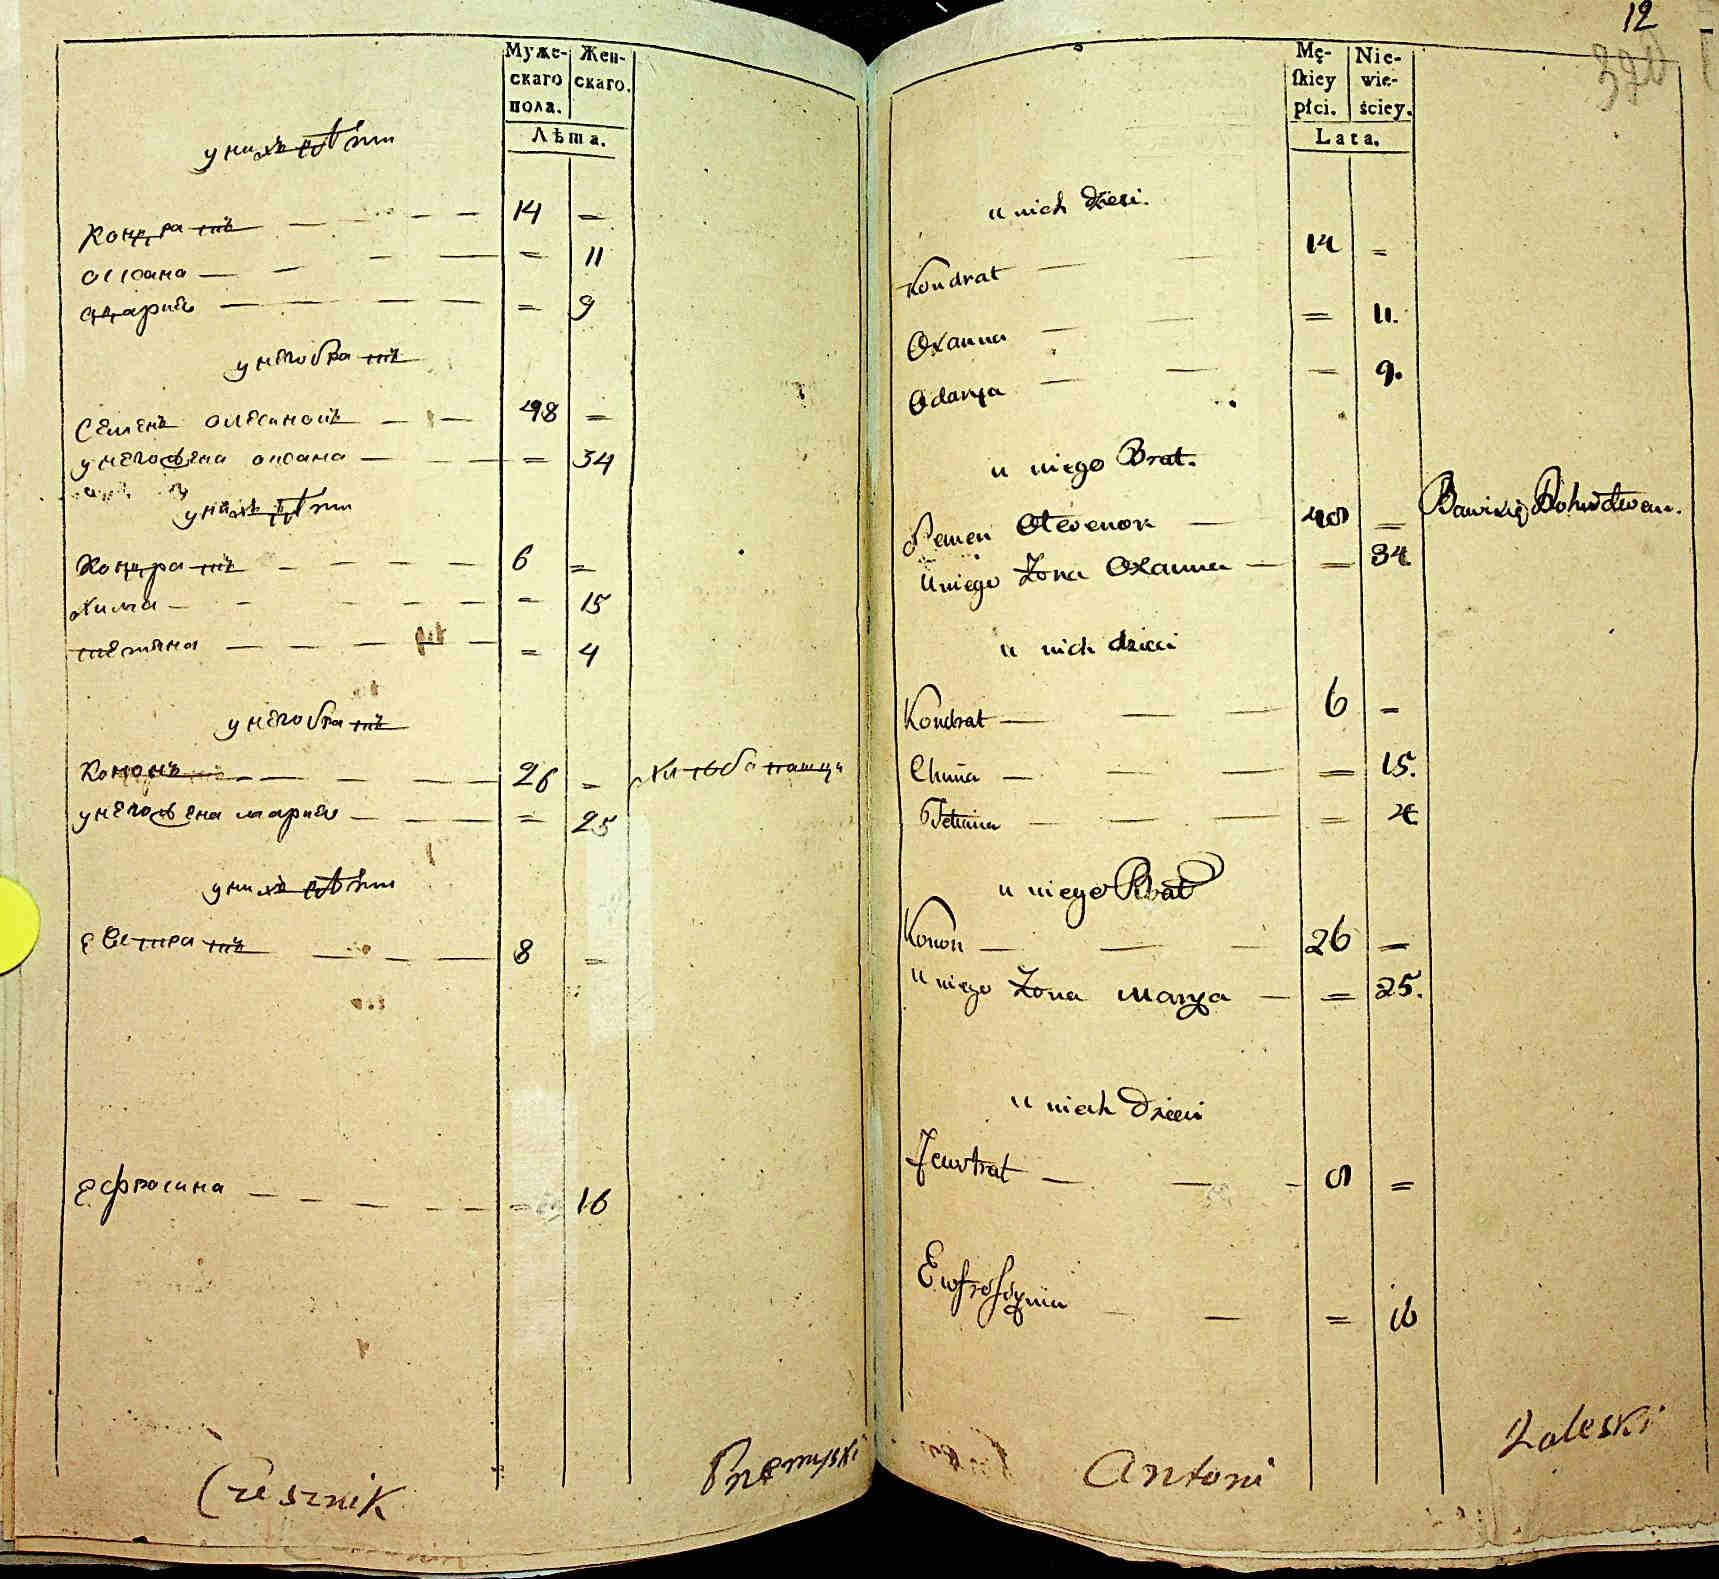 Муже-
скаго
пола.
Жен-
скаго.
Лѣта.
у нихъ дѣти
Кондратъ — — — — 14 =
оксана — — — — = 11
одариѧ — — — — = 9
у него братъ
Семенъ — — 48 =
у него жена оксана — — = 34
у нихъ дѣти
Кондратъ — — — — 6 =
Химиа — — — — = 15
тетѧна — — — — = 4
у него братъ
Кононъ — — — — 26 =
у него жена мариѧ — — — = 25
у нихъ дѣти
евстратъ — — — 8 =
ефросина — — — — = 16
Czesznik
12
Mę-
ſkiey
płci.
Nie-
wie-
ściey.
Lata.
u nich dzieci.
Kondrat — — 14 =
Oxanna — — = 11.
Odarya — — — 9.
u niego Brat.
Semen — 48 =
u niego Żona Oxanna — = 34
u nich dzieci
Kondrat — — — 6 =
Chima — — — = 15.
Tetiana — — — = 4
u niego Brat
Konon — — — 26 =
u niego Żona Marya — = 25.
u nich Dzieci
Jewstrat — — - 8 =
Ewfroſzynia — — = 16
Antoni Zaleski